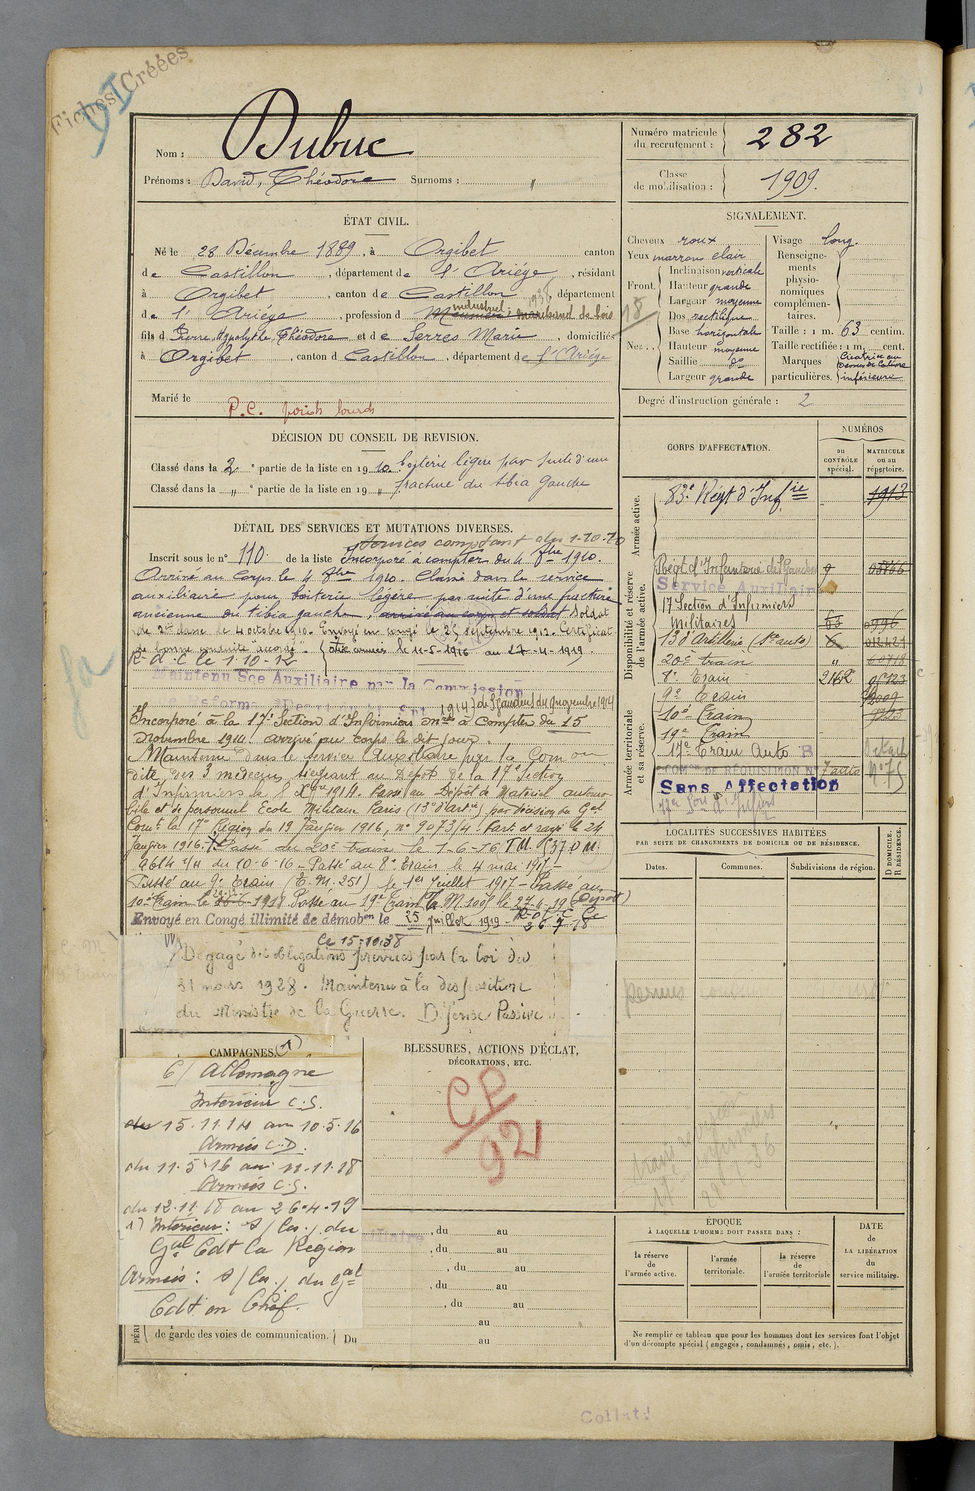 Fiches Créées
Nom : Dubuc
Prénoms : David, Théodore Surnoms : "
Numéro matricule du recrutement : 282
Classe de mobilisation : 1909.
ÉTAT CIVIL.
Né le 28 Décembre 1889, à Orgibet canton
de Castillon, département de l'Ariége, résidant
à Orgibet, canton de Castillon, département
de l'Ariége, profession d industriel marchand de bois
fils d Pierre, Hippolythe, Théodore et de Serres Marie, domiciliés
à Orgibet, canton d Castillon, département de l'Ariége
Marié le
P.C. poids lourds
SIGNALEMENT.
Cheveux roux
Yeux marrons clair
Front. Inclinaison verticale
Hauteur grande
Largeur moyenne
Nez.. Dos rectiligne
Base horizontale
Hauteur moyenne
Saillie do
Largeur grande
Visage long.
Renseignements physionomiques complémentaires.
Taille : 1 m. 63 centim.
Taille rectifiée : 1 m. cent.
Marques particulières. Cicatrice au
inférieure
Degré d'instruction générale : 2
DÉCISION DU CONSEIL DE REVISION.
Classé dans la 2 e partie de la liste en 1910. boiterie légère par suite d'une
Classé dans la " e partie de la liste en 19 " fracture du tibia gauche
DÉTAIL DES SERVICES ET MUTATIONS DIVERSES.
services comptant du 1-10-10
Inscrit sous le n° 110 de la liste Incorporé à compter du 4 8bre 1910.
Arrivé au corps le 4 8bre 1910. Classé dans le service
auxiliaire pour boiterie légère par suite d'une fracture
ancienne du tibia gauche, arrivé au corps et soldat Soldat
de 2e classe le 4 octobre 1910. Envoyé en congé le 25 septembre 1912. Certificat
de bonne conduite accordé. aux armées le 11-5-1916 au 27-4-1919.
R.d.C. le 1-10-12
Maintenu Sce Auxiliaire par la Commission
1914) de St Gaudens du 9 novembre 1914
Incorporé à la 17e Section d'Infirmiers Mres à compter du 15
novembre 1914. arrivé au corps le dit jour.
Maintenu dans le service auxiliaire par la Com on
dite des 3 médecins siégeant au Dépôt de la 17e Section
d'Infirmiers le 8 Xbre 1914. Passé au Dépôt de Matériel automo-
bile et de personnel Ecole Militaire Paris (13e d'Artie) par décision du Gal
Comt la 17e Région du 19 Janvier 1916, n° 9073/4. Parti et rayé le 24
Janvier 1916. Passé au 20e train le 1-6-16 T.M. 537 O.M.
9614 1/4 du 10-6-16 - Passé au 8e Train le 4 mai 1917 -
Passé au 9e Train (T.M. 251) le 1er Juillet 1917 - Passé au
10e Train le 1918 Passé au 19e Train T.M. 1005 le 27-4-19 (Dépôt)
Envoyé en Congé illimité de démobon le 25 Juillet 1919
Ce 15-10-38
Dégagé des obligations prévues par la loi du
31 mars 1928. Maintenu à la disposition
du Ministre de la Guerre. Défense Passive
CORPS D'AFFECTATION.
NUMÉROS
du CONTRÔLE spécial.
MATRICULE ou au répertoire.
Armée active.
83e Régt d'Infie 1913
Disponibilité et réserve de l'armée active.
Régt d'Infanterie St Gaudens
Service Auxiliaire
17 Section d'Infirmiers
Militaires 63 0996
13 d'Artillerie (Pc auto)
20e train "
8e Train
Armée territoriale et sa réserve.
9e Train
10e Train
19e Train
17e Train Auto B
Sans Affectation
LOCALITÉS SUCCESSIVES HABITÉES
PAR SUITE DE CHANGEMENTS DE DOMICILE OU DE RÉSIDENCE.
Dates. Communes. Subdivisions de région. D DOMICILE. R RÉSIDENCE.
CAMPAGNES. (1)
C/ Allemagne
Intérieur C.S.
du 15.11.14 au 10.5.16
Armées C.D.
du 11.5.16 au 11.11.18
Armées C.S.
du 12.11.18 au 26.4.19
1) Intérieur: s/ Cas. du
Gal Cdt la Région
Armées: s/ Cas. du Gal
Cdt en Chef.
BLESSURES, ACTIONS D'ÉCLAT,
DÉCORATIONS, ETC.
CP/921
, du au
, du au
, du au
, du au
, du au
au
de garde des voies de communication. Du au
ÉPOQUE
À LAQUELLE L'HOMME DOIT PASSER DANS :
la réserve de l'armée active.
l'armée territoriale.
la réserve de l'armée territoriale
DATE DE LA LIBÉRATION du service militaire.
Ne remplir ce tableau que pour les hommes dont les services font l'objet
d'un décompte spécial (engagés, condamnés, omis, etc.).
Collat